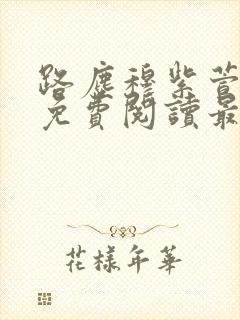 路塵穆紫萱
免費閱讀最
花樣年華